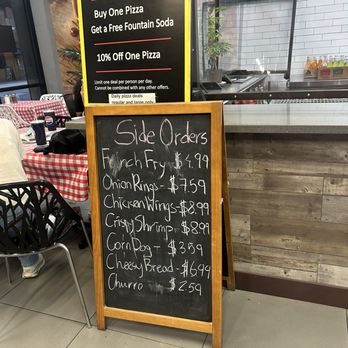 Buy One Pizza
Get a Free Fountain Soda
10% Off One Pizza
Limit one deal per person per day.
Cannot be combined with any other offers.
Daily pizza deals
regular and large only
Side Orders
French Fry $4.99
Onion Rings - $7.59
Chicken Wings - $8.99
Crispy Shrimp $8.99
Corn Dog - $3.59
Cheesy Bread - $6.99
Churro - $2.59